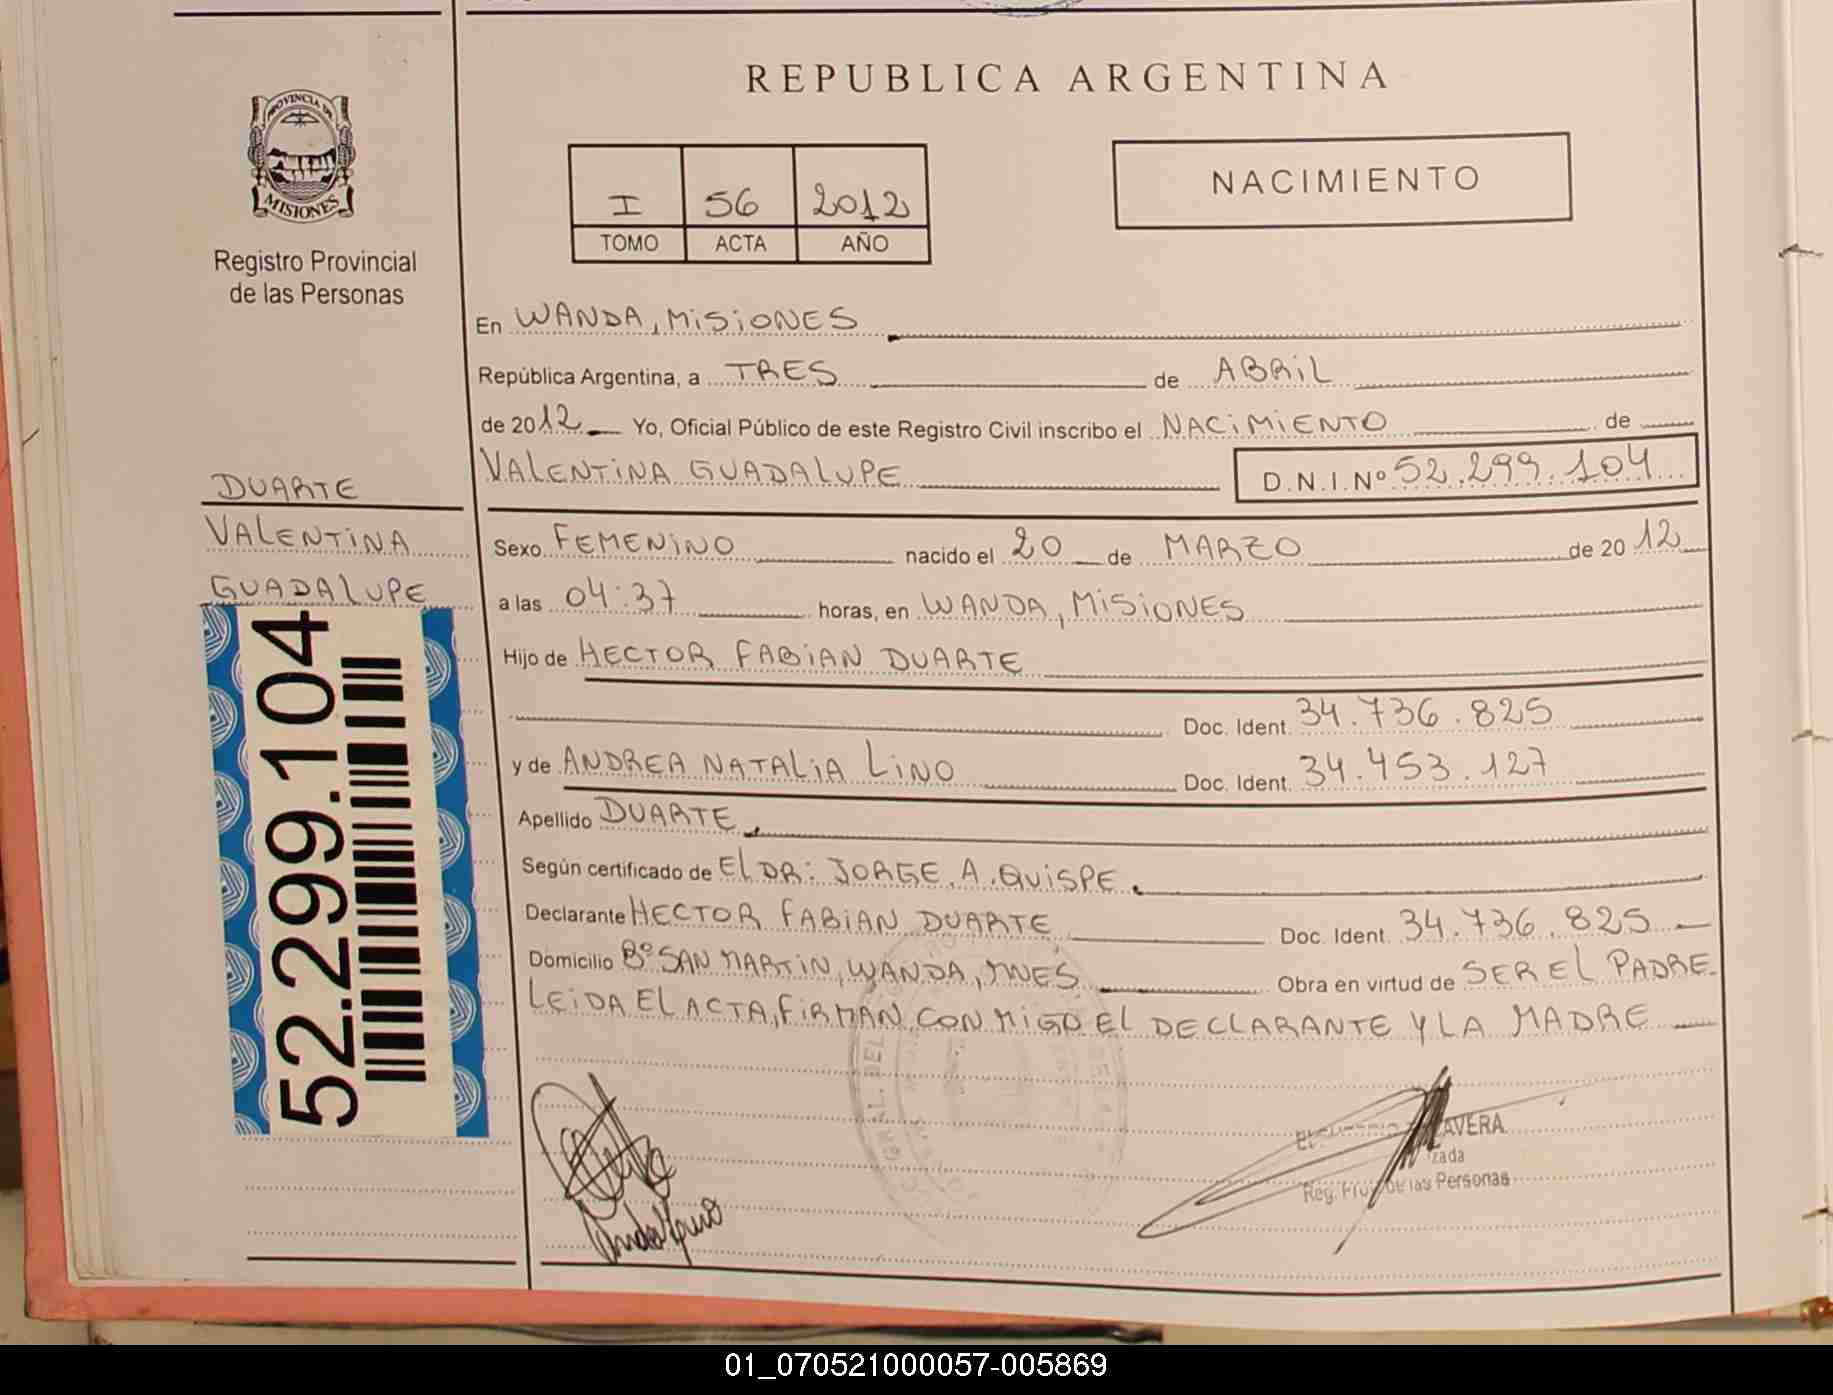 REPUBLICA ARGENTINA
PROVINCIA DE
MISIONES
Registro Provincial
de las Personas
I 56 2012
TOMO ACTA AÑO
NACIMIENTO
En WANDA, MISIONES
República Argentina, a TRES de ABRIL
de 2012 Yo, Oficial Público de este Registro Civil inscribo el NACIMIENTO de
VALENTINA GUADALUPE D.N.I.Nº 52.299.104
DUARTE
VALENTINA
GUADALUPE
52.299.104
Sexo FEMENINO nacido el 20 de MARZO de 2012
a las 04:37 horas, en WANDA, MISIONES
Hijo de HECTOR FABIAN DUARTE
Doc. Ident. 34.736.825
y de ANDREA NATALIA LINO Doc. Ident. 34.453.127
Apellido DUARTE
Según certificado de El DR: JORGE. A. QUISPE.
Declarante HECTOR FABIAN DUARTE Doc. Ident. 34.736.825
Domicilio Bº SAN MARTIN, WANDA, MNES Obra en virtud de SER El PADRE.
LEIDA El ACTA, FIRMAN CONMIGO EL DECLARANTE Y LA MADRE
AVERA
zada
Reg. de las Personas
01_070521000057-005869